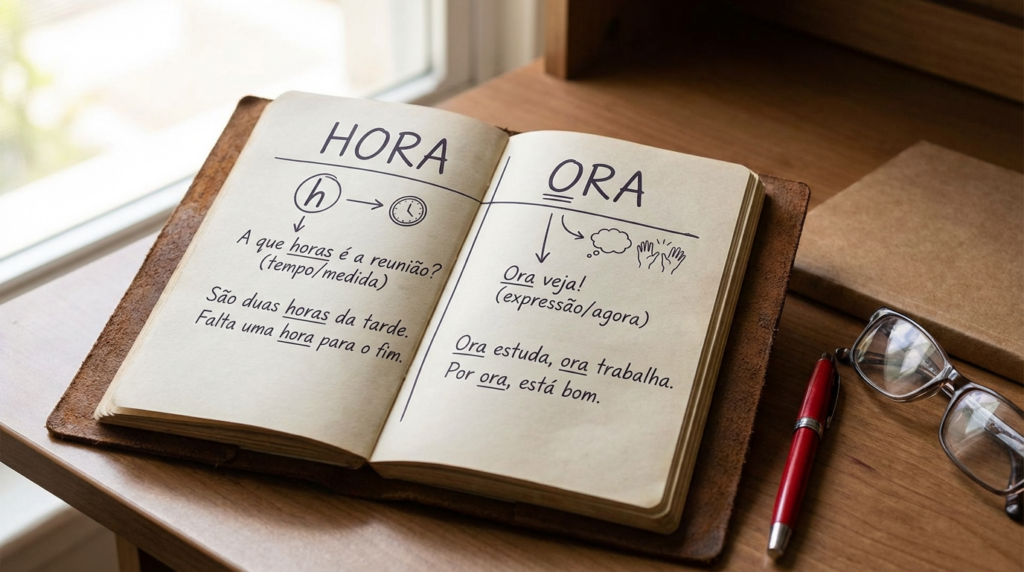 HORA
h
A que horas é a reunião?
(tempo/medida)
São duas horas da tarde.
Falta uma hora para o fim.
ORA
Ora veja!
(expressão/agora)
Ora estuda, ora trabalha.
Por ora, está bom.